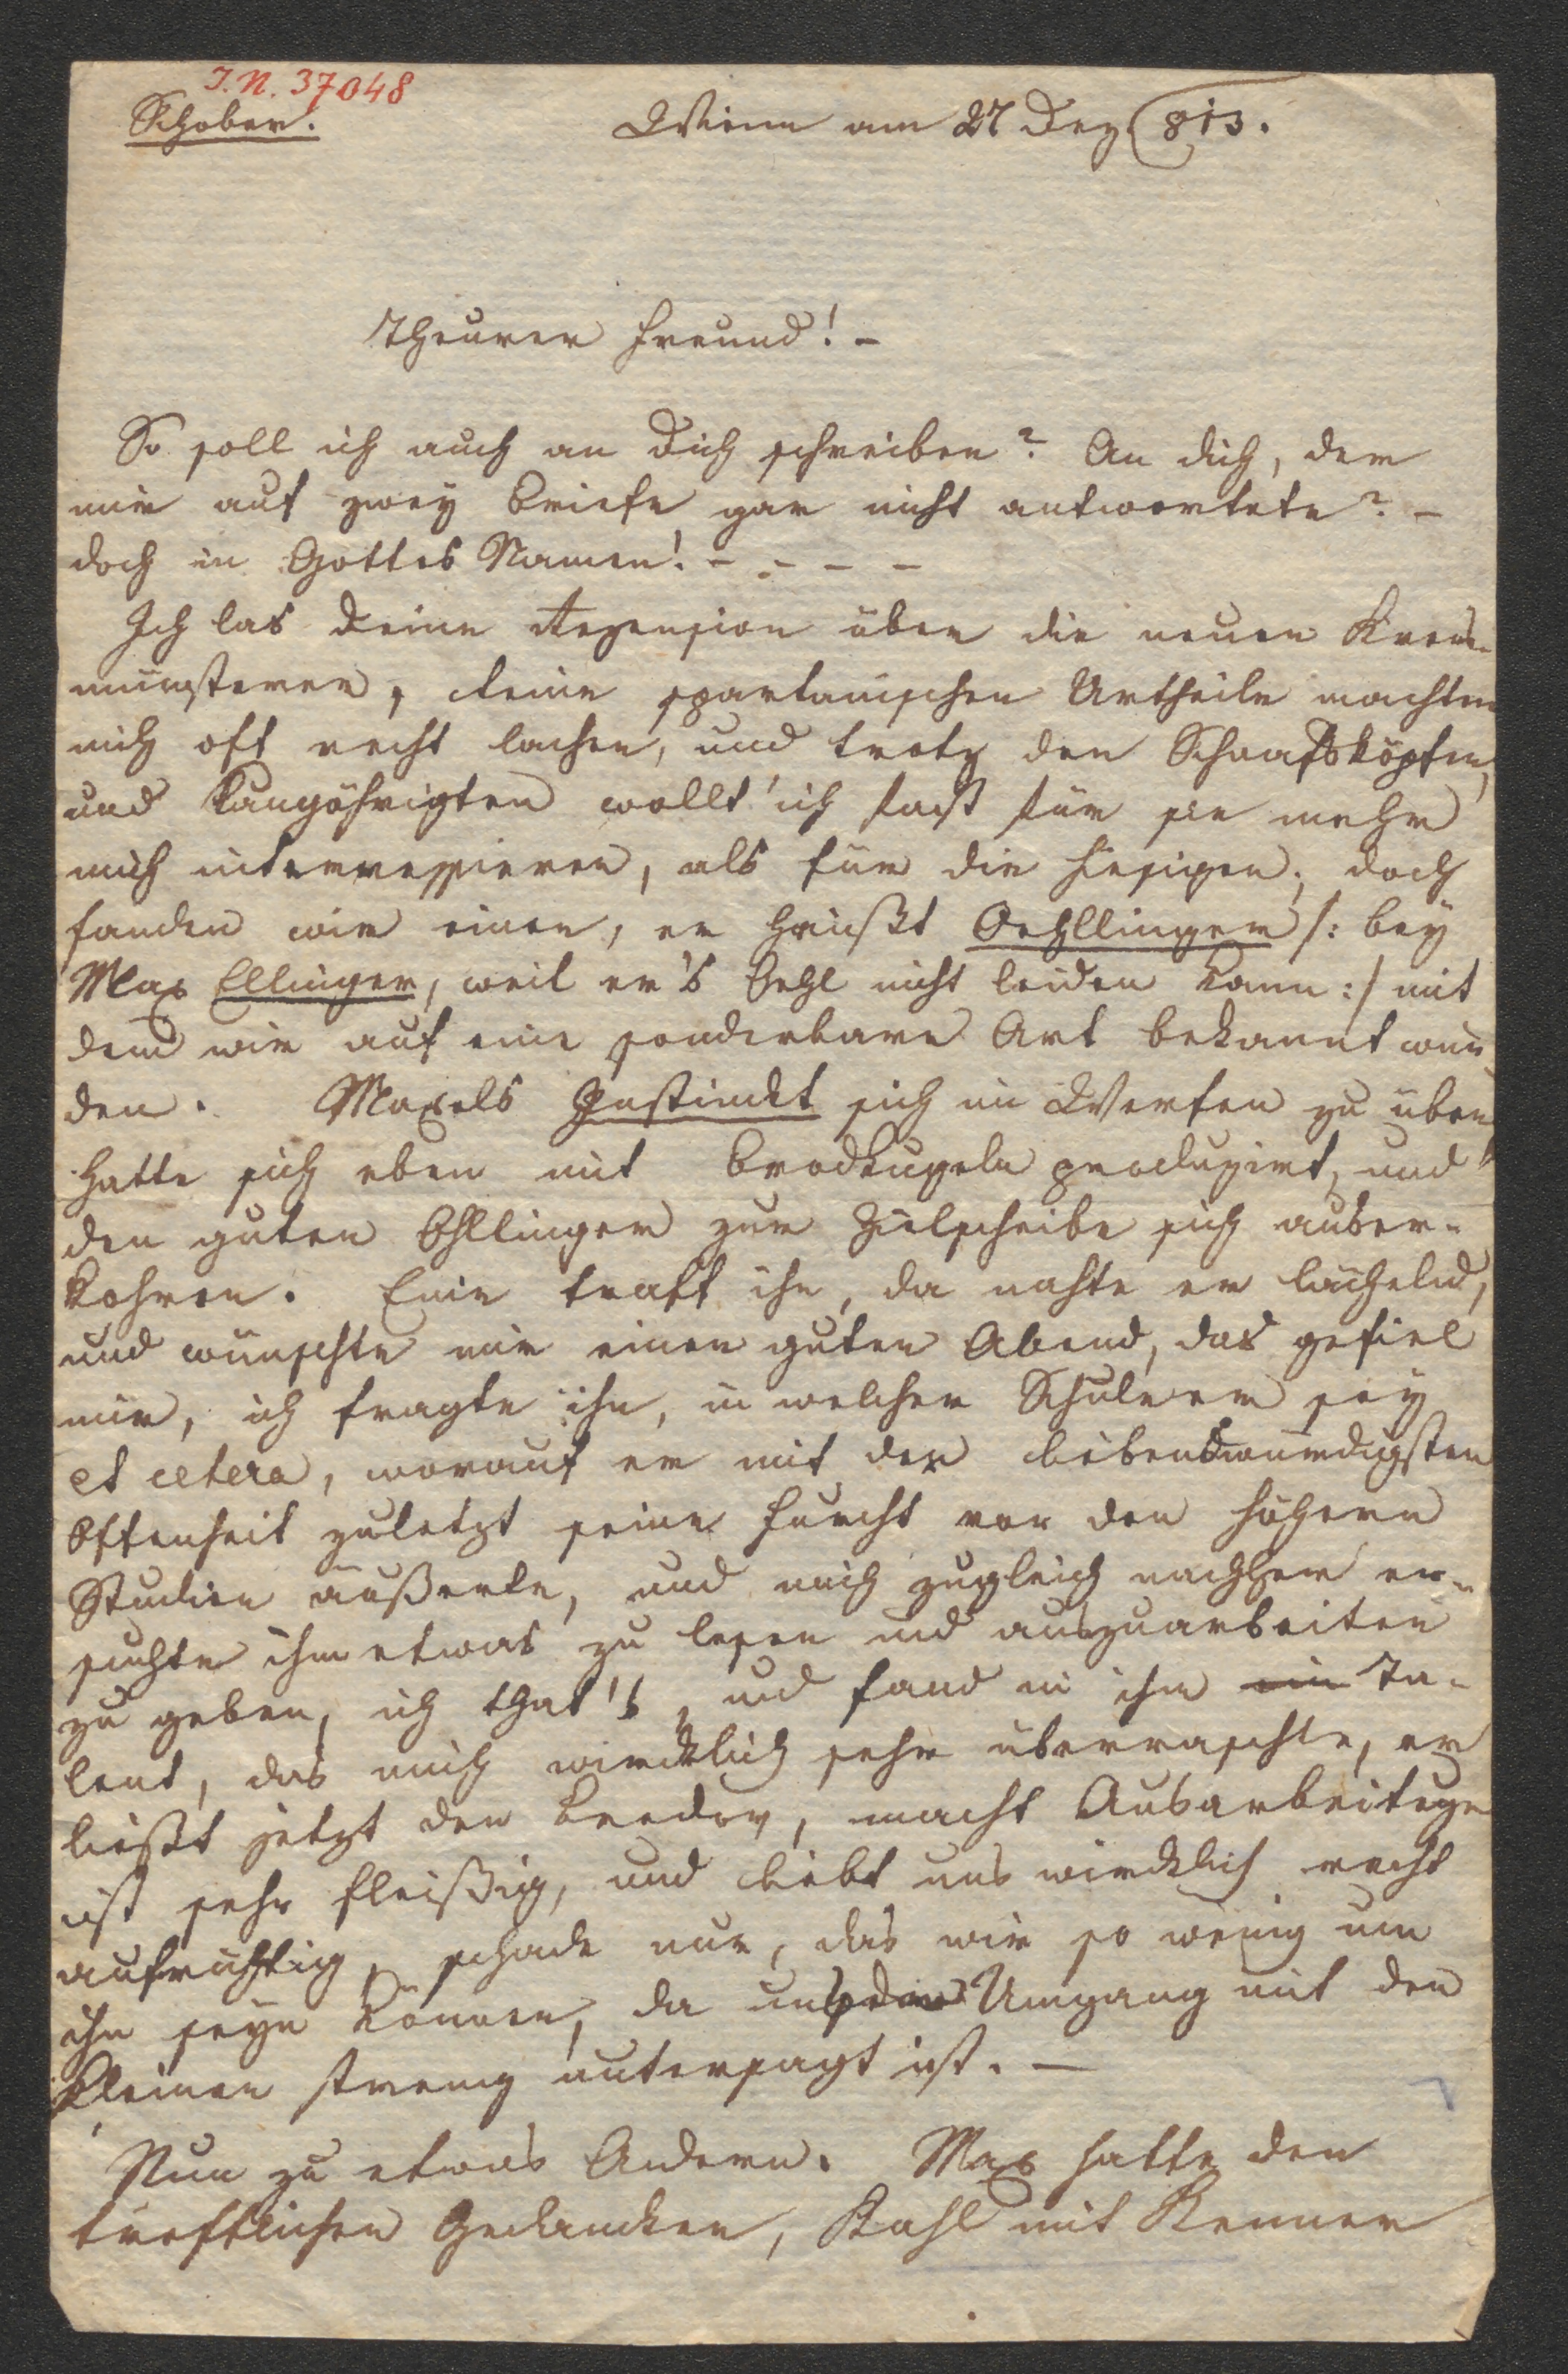 I.N. 37048
Schober.
Wienn am 27 Dez 813.
Theurer Freund! –
So soll ich auch an Dich schreiben? An dich, der
mir auf zwey Briefe gar nicht antwortete? –
doch in Gottes Namen! – – – –
Ich las Deine Rezension über die neuen Krems-
münsterer, deine spartanischen Urtheile machten
mich oft recht lachen, und trotz den Schaafsköpfen,
und Langöhrigten wollt' ich fast für sie mehr
mich interressieren, als für die hiesigen; doch
fanden wir einen, er heißt Oehllinger /: bey
Max Ellinger, weil er's Oehl nicht leiden kann :/ mit
dem wir auf eine sonderbare Art bekannt wur-
den. Maxels Instinckt sich im Werfen zu üben
hatte sich eben mit Brodkugeln produzirt, und
den guten Ohllinger zur Zielscheibe sich auser-
kohren. Eine traff ihn, da nahte er lächelnd,
und wünschte mir einen guten Abend, das gefiel
mir, ich fragte ihn, in welcher Schule er sey
et cetera, worauf er mit der liebenswürdigsten
Offenheit zuletzt seine Furcht vor den höhern
Studien äußerte, und mich zugleich nachher er-
suchte ihm etwas zu lesen und auszuarbeiten
zu geben, ich that's, und fand in ihm ein Ta-
lent, das mich wircklich sehr überraschte, er
ließt jetzt den , macht Ausarbeitugen
ist sehr fleißig, und liebt uns wircklich recht
aufrichtig, schade nur, das wir so wenig um
ihn seyn können, da uns der Umgang mit den
Kleinen streng untersagt ist. —
Nun zu etwas Andern. Max hatte den
trefflichen Gedancken, Kahl mit Kenner